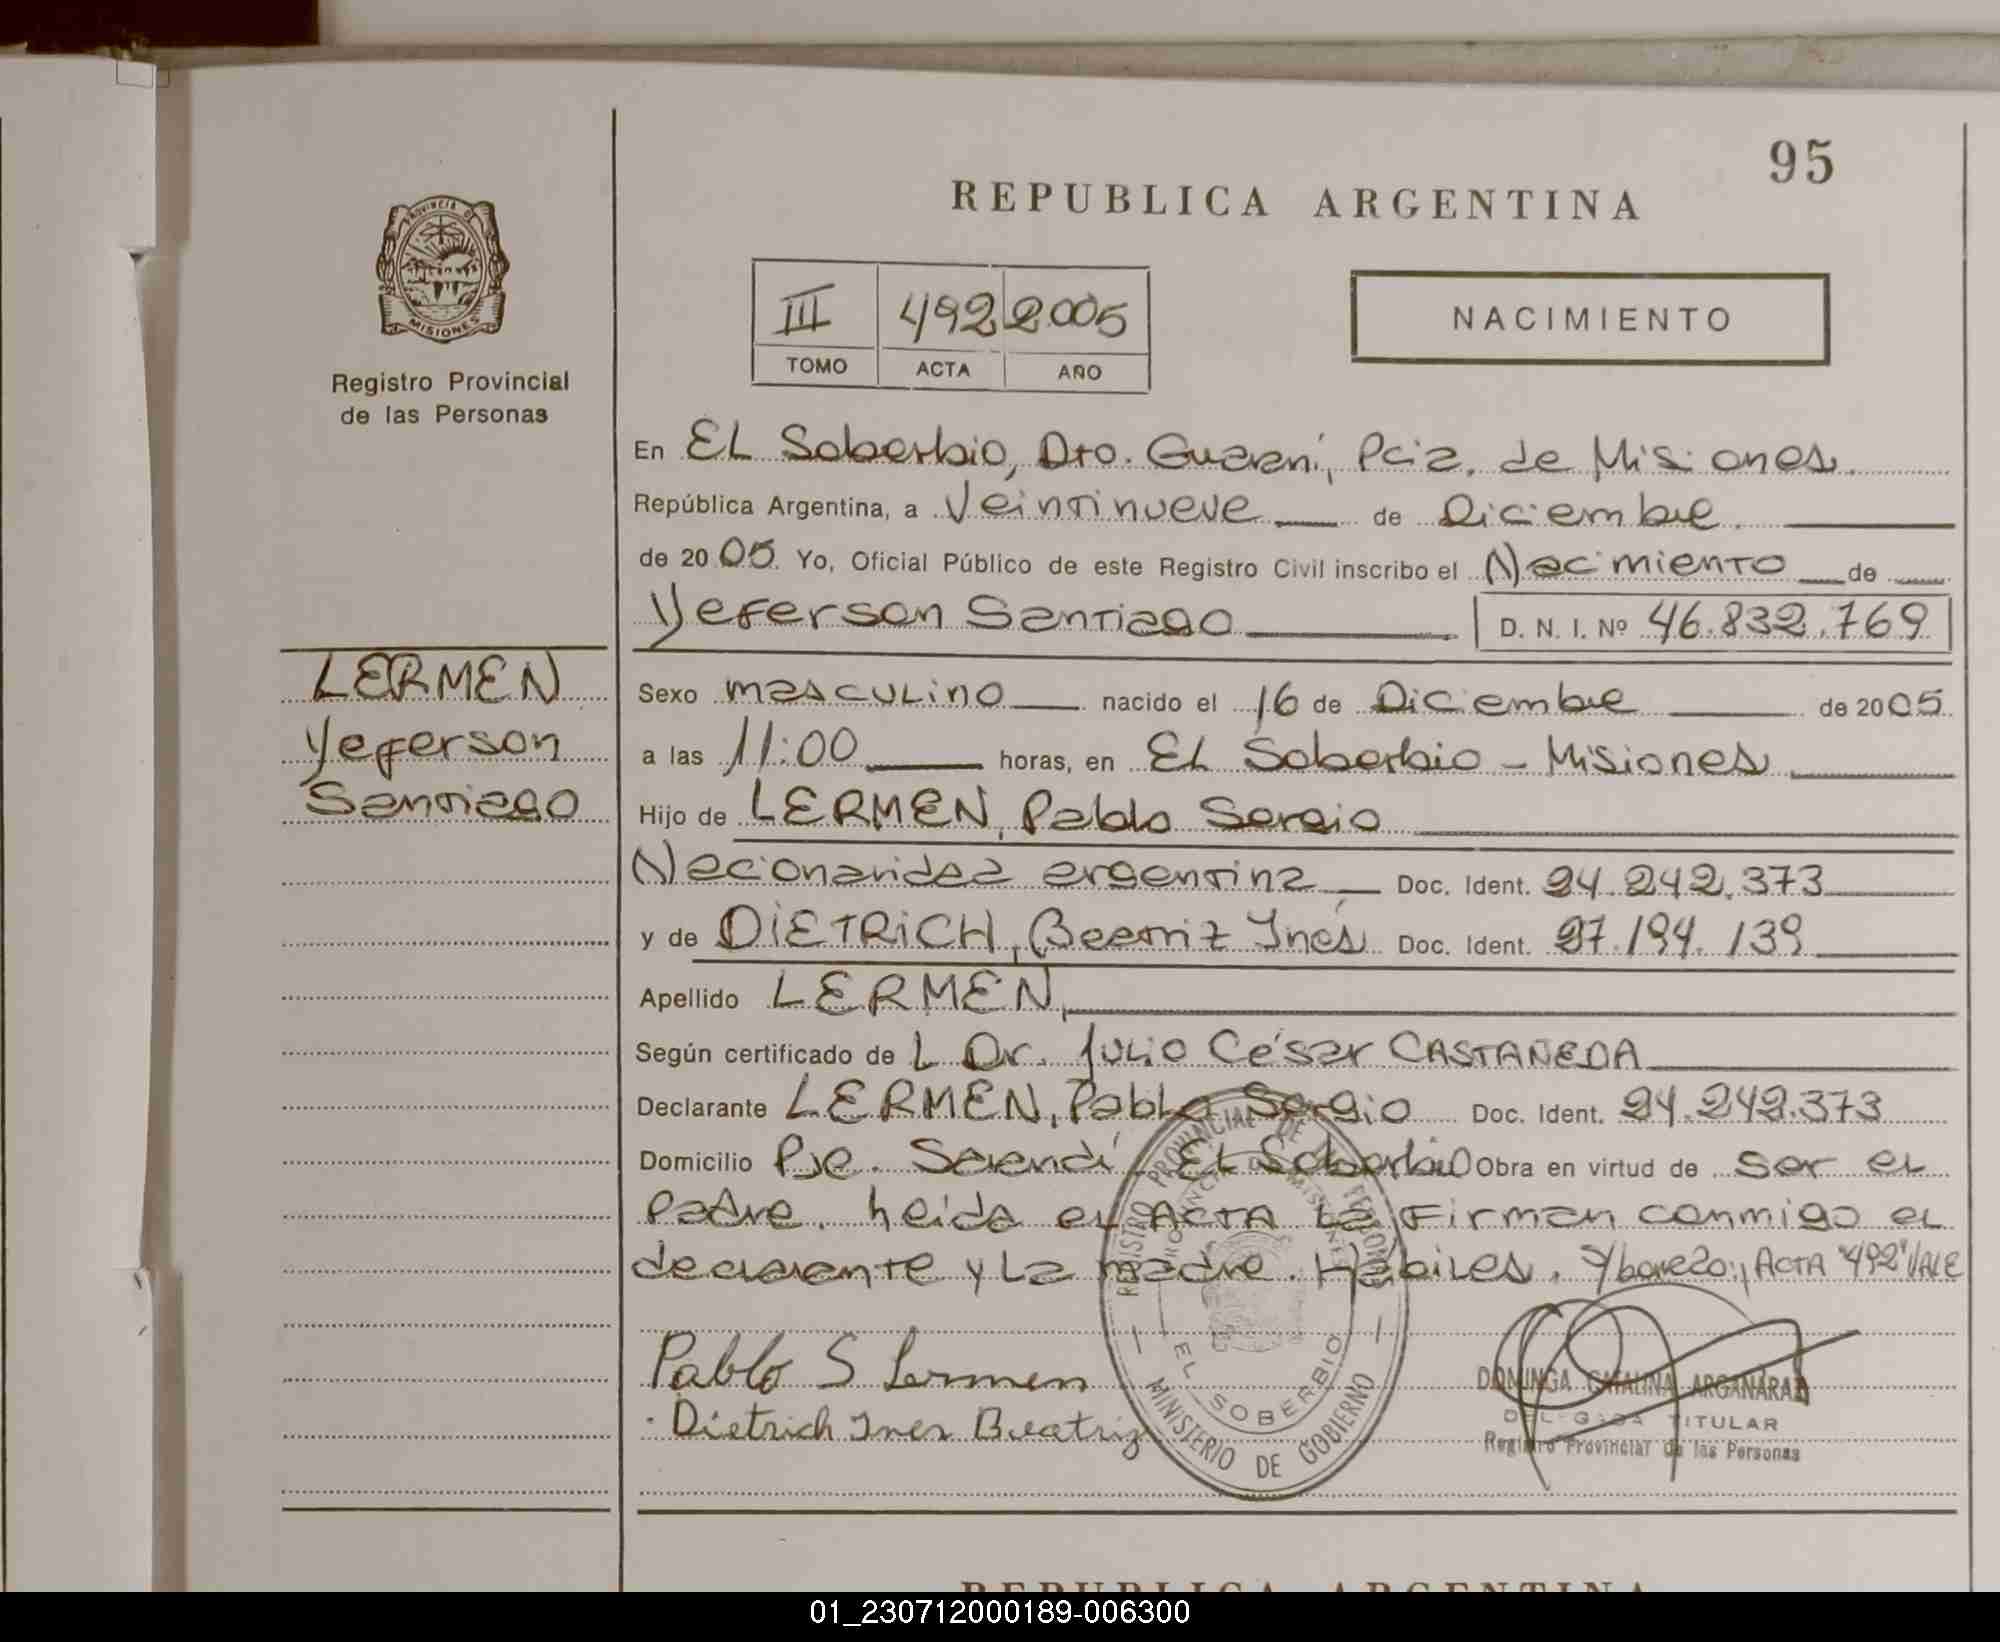 95
REPUBLICA ARGENTINA
PROVINCIA DE
MISIONES
Registro Provincial
de las Personas
III 492 2005
TOMO ACTA AÑO
NACIMIENTO
En EL Soberbio, Dto. Guaraní, Pcia. de Misiones.
República Argentina, a Veintinueve de Diciembre.
de 2005. Yo, Oficial Público de este Registro Civil inscribo el Nacimiento de
Yeferson Santiago D. N. I. Nº 46.832.769
LERMEN
Yeferson
Santiago
Sexo masculino nacido el 16 de Diciembre de 2005
a las 11:00 horas, en EL Soberbio - Misiones
Hijo de LERMEN, Pablo Sergio
Nacionalidad argentina Doc. Ident. 24.242.373
y de DIETRICH, Beatriz Inés Doc. Ident. 27.194.139
Apellido LERMEN,
Según certificado de L Dr. Julio César CASTAÑEDA
Declarante LERMEN, Pablo Sergio Doc. Ident. 24.242.373
Domicilio Pje. Sarandí, EL Soberbio Obra en virtud de ser el
Padre. heida el ACTA La Firman conmigo el
declarante y La madre. Hábiles. ACTA "492" VALE
Pablo S Lermen
Dietrich Ines Beatriz
REGISTRO PROVINCIAL DE LAS PERSONAS
PROVINCIA DE MISIONES
EL SOBERBIO
MINISTERIO DE GOBIERNO
DOMINGA CATALINA ARGAÑARAZ
DELEGADA TITULAR
Registro Provincial de las Personas
REPUBLICA ARGENTINA
01_230712000189-006300